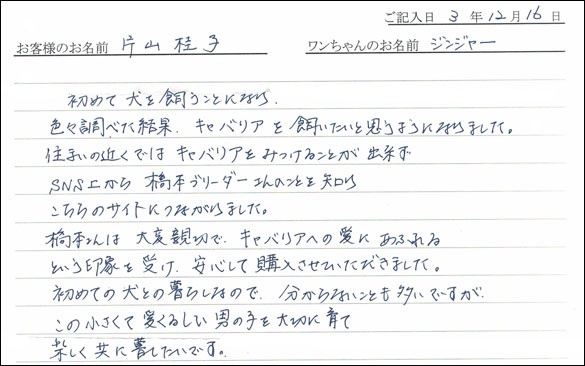 ご記入日 3 年 12 月 16 日
お客様のお名前 片山 桂子 ワンちゃんのお名前 ジンジャー
初めて犬を飼うことになり、
色々調べた結果、キャバリアを飼いたいと思うようになりました。
住まいの近くでは キャバリアをみつけることが出来ず
SNS上から 橋本ブリーダーさんのことを知り
こちらのサイトにつながりました。
橋本さんは 大変親切で、キャバリアへの愛に あふれる
という印象を受け、安心して購入させていただきました。
初めての犬との暮らしなので、分からないことも多いですが、
この小さくて愛くるしい男の子を大切に育て
楽しく共に暮したいです。